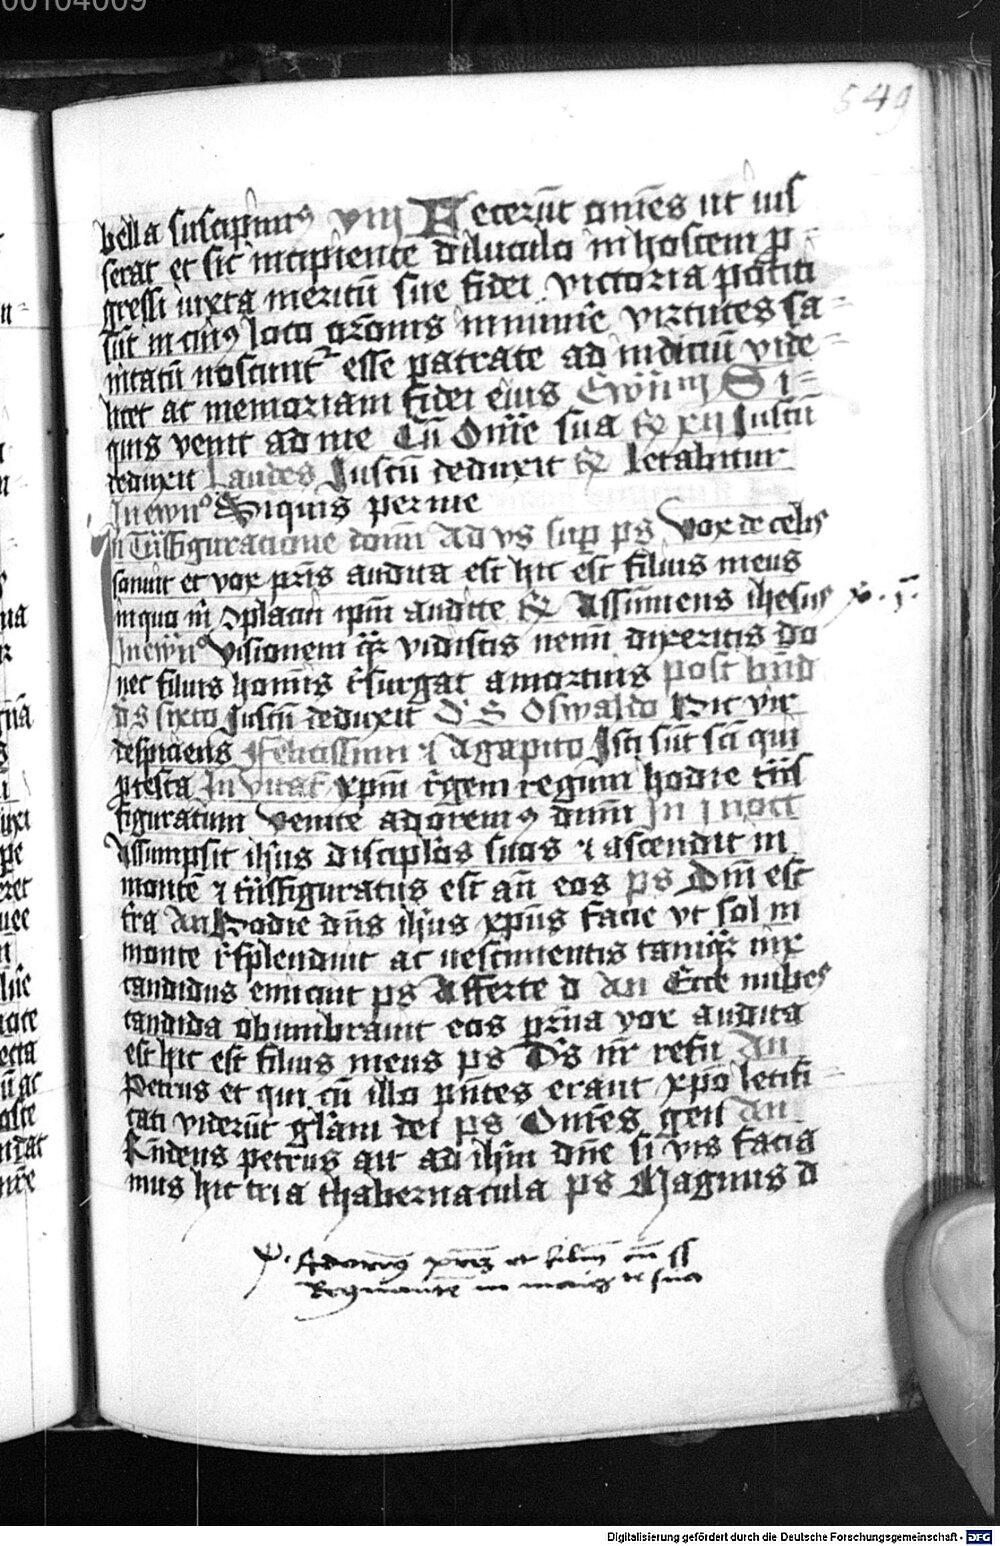 00104009
549
bella suscipimus viij Fecerūt om̄es ut ius
serat et sic incipiente diluculo in hostem p̄
gressi iuxta meritū sue fidei victoria potiti
sūt in cuiꝰ loco or̄onis innume virtutes sa
nitatū noscuntʳ esse patrate ad indiciū vide
licet ac memoriam fidei eius Ewn̄ ııȷ Si
quis venit ad me Cū Om̄e sua R xij Iustū
deduxit Laudes Iustū deduxit R letabitur
In ewn̄º Siquis per me
In Tn̄sfiguracione domı̄ Ad vs sup ps Vox de celis
sonuit et vox pr̄is audita est hic est filius meus
in quo m̄ ꝯplacui ipm̄ audite R Assumens ihesus
In ewn̄º visionem quā vidistis nemı̄ dixeritis do
nec filius homīs r̄surgat a mortuis post
d's sixto Iustū deduxit D' S Oswaldo Hic vir
despiciens Felicissimi ⁊ Agapito Isti sūt sc̄i qui
ptesta In vitat' xpm̄ r̄gem regum hodie tn̄s
figuratum venite adoremꝰ domı̄ In j noct
Assumpsit ih̄us discipl̄os suos ⁊ ascendit in
montē ⁊ tn̄sfiguratus est an̄ eos ps Dn̄i est
t̄ra An Hodie dn̄s ih̄us xp̄us facie vt sol in
monte r̄splenduit ac uestimentis tamquā nix
candidus emicuit ps Afferte d An Ecce nubes
candida obumbrauit eos pr̄na vox audita
est hic est filius meus ps D's nr̄ refu An
Petrus et qui cū illo pn̄tes erant xpo letifi
cati viderūt gl̄am dei ps Om̄es gen An
R̄ndens petrus ait ad ih̄m dn̄e si vis facia
mus hic tria thabernacula ps Magnus d
et filiū cū ss
Regnantē in
Digitalisierung gefördert durch die Deutsche Forschungsgemeinschaft - DFG